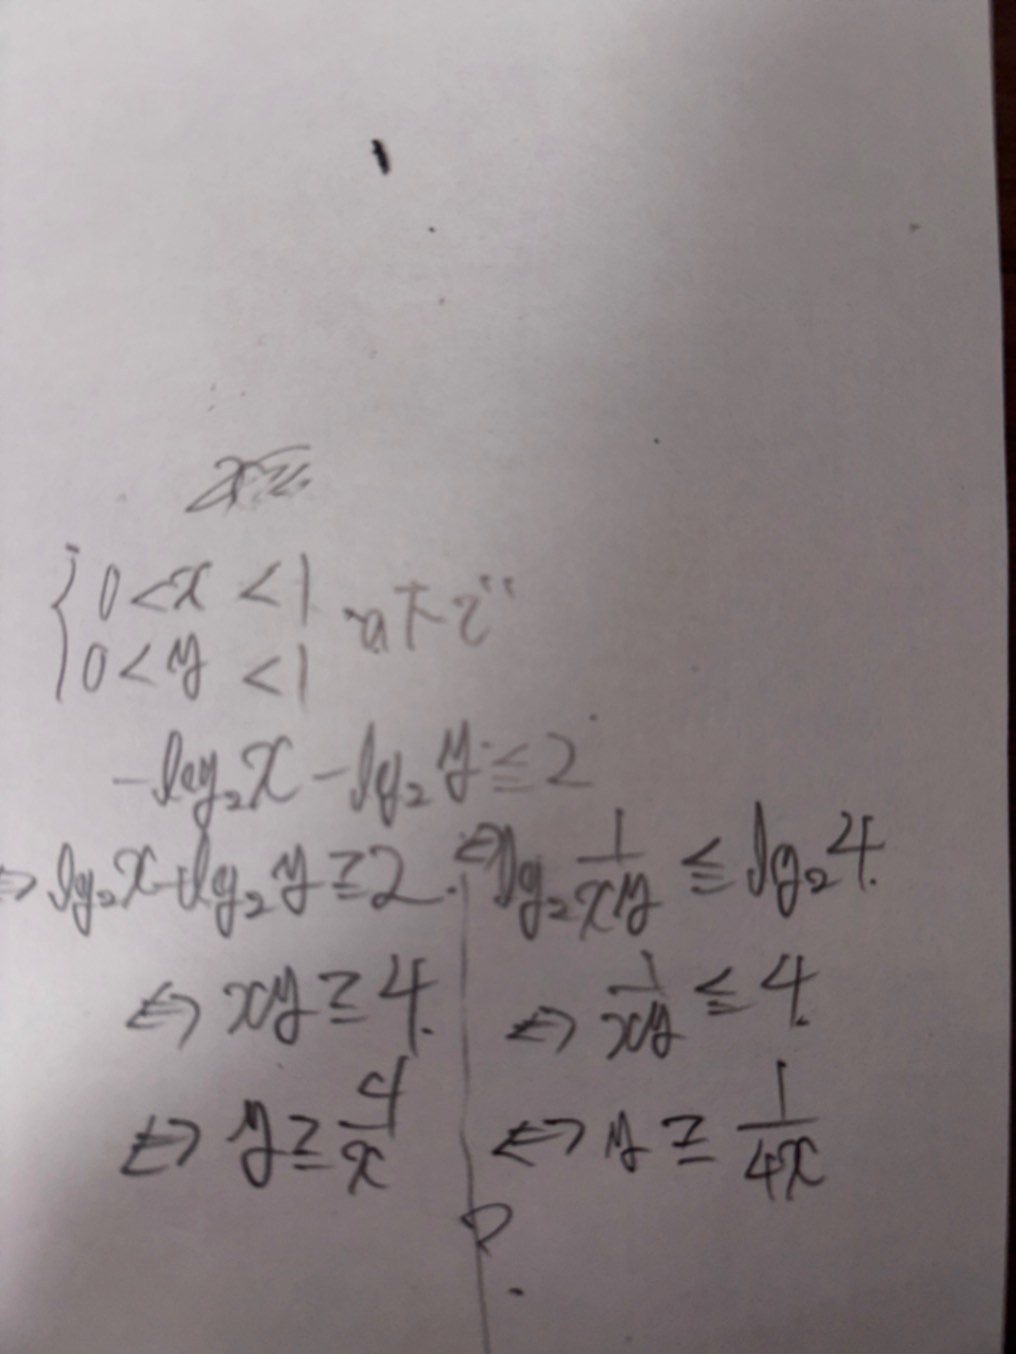 { 0 < x < 1 のトキ
0 < y < 1
-log₂x - log₂y ≦ 2
⇔ log₂x + log₂y ≧ 2. ⇔ log₂ 1/xy ≦ log₂4.
⇔ xy ≧ 4. ⇔ 1/xy ≦ 4.
⇔ y ≧ 4/x ⇔ y ≧ 1/4x
?